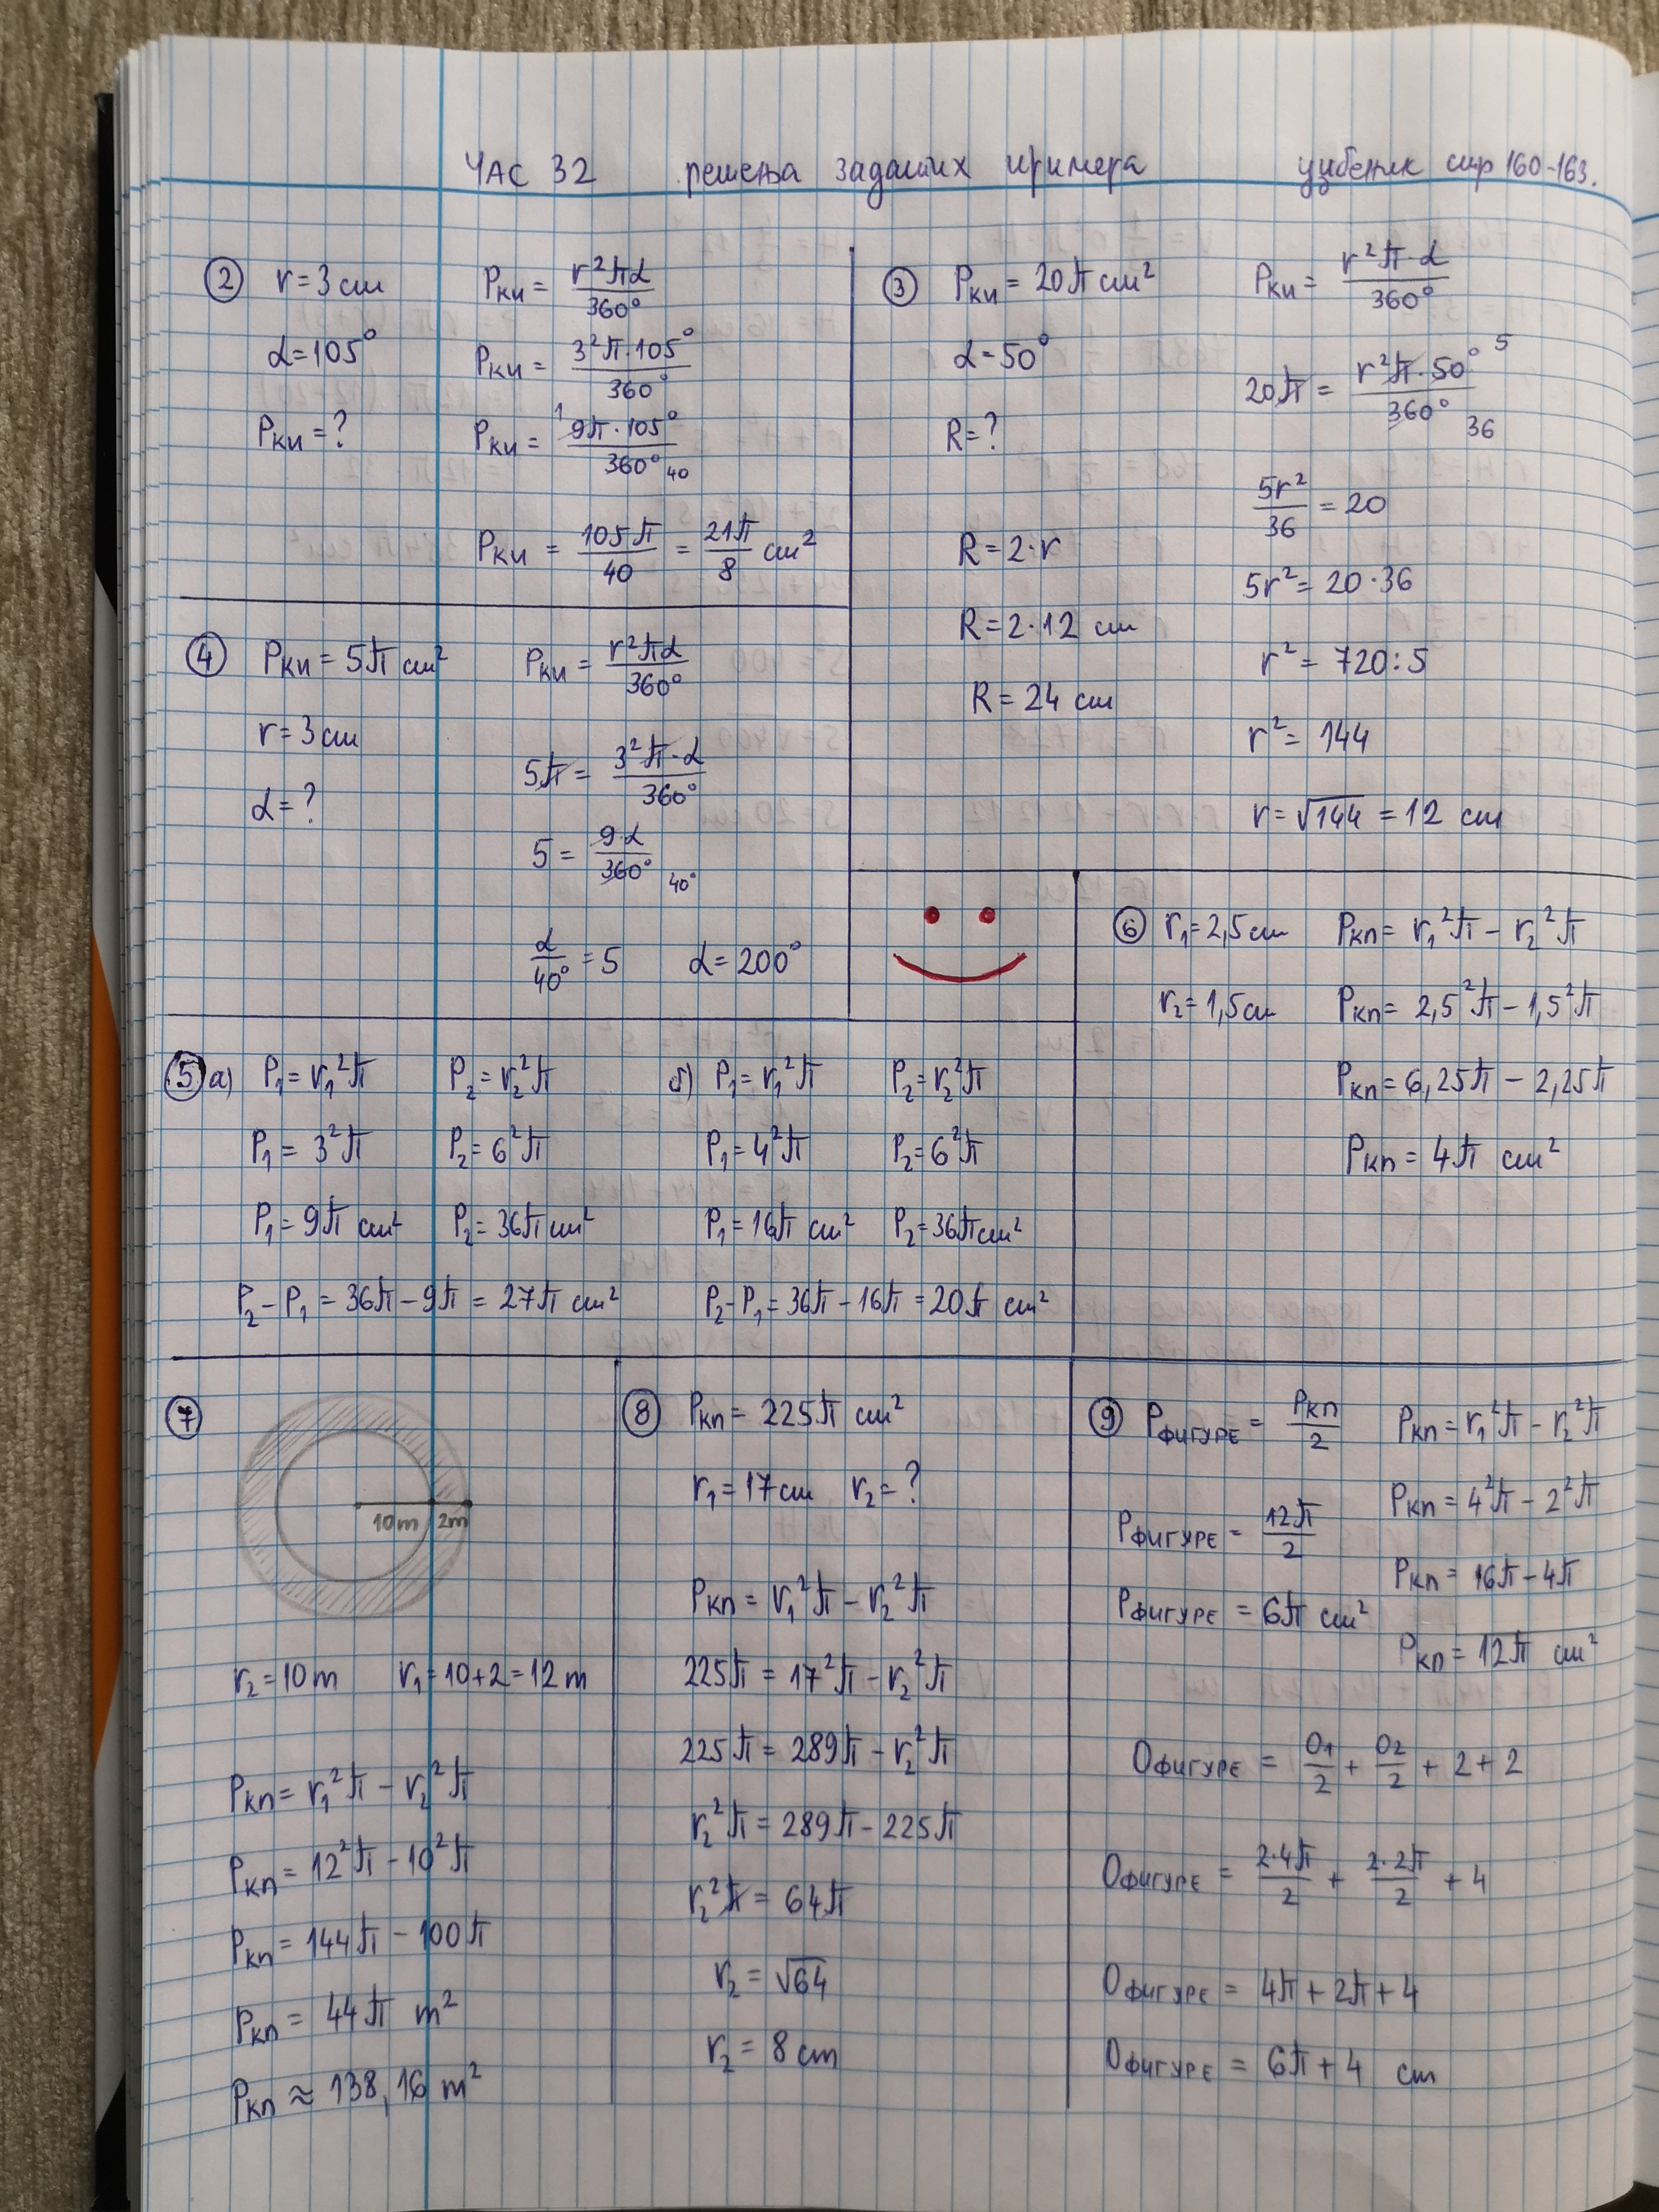 ЧАС 32 решења задатих примера уџбеник стр 160-163.
② r = 3 cm
α = 105°
Pки = ?
Pки = r²πα / 360°
Pки = 3²π·105° / 360°
Pки = 9π·105° / 360° 1 40
Pки = 105π / 40 = 21π / 8 cm²
③ Pки = 20π cm²
α = 50°
R = ?
R = 2·r
R = 2·12 cm
R = 24 cm
Pки = r²π·α / 360°
20π = r²π·50° / 360° 5 36
5r² / 36 = 20
5r² = 20·36
r² = 720:5
r² = 144
r = √144 = 12 cm
④ Pки = 5π cm²
r = 3 cm
α = ?
Pки = r²πα / 360°
5π = 3²π·α / 360°
5 = 9·α / 360° 40°
α / 40° = 5 α = 200°
⑤ а) P₁ = r₁²π P₂ = r₂²π
P₁ = 3²π P₂ = 6²π
P₁ = 9π cm² P₂ = 36π cm²
P₂ − P₁ = 36π − 9π = 27π cm²
б) P₁ = r₁²π P₂ = r₂²π
P₁ = 4²π P₂ = 6²π
P₁ = 16π cm² P₂ = 36π cm²
P₂ − P₁ = 36π − 16π = 20π cm²
⑥ r₁ = 2,5 cm
r₂ = 1,5 cm
Pкп = r₁²π − r₂²π
Pкп = 2,5²π − 1,5²π
Pкп = 6,25π − 2,25π
Pкп = 4π cm²
⑦
10m 2m
r₂ = 10 m r₁ = 10+2 = 12 m
Pкп = r₁²π − r₂²π
Pкп = 12²π − 10²π
Pкп = 144π − 100π
Pкп = 44π m²
Pкп ≈ 138,16 m²
⑧ Pкп = 225π cm²
r₁ = 17 cm r₂ = ?
Pкп = r₁²π − r₂²π
225π = 17²π − r₂²π
225π = 289π − r₂²π
r₂²π = 289π − 225π
r₂²π = 64π
r₂ = √64
r₂ = 8 cm
⑨ PФИГУРЕ = Pкп / 2
PФИГУРЕ = 12π / 2
PФИГУРЕ = 6π cm²
Pкп = r₁²π − r₂²π
Pкп = 4²π − 2²π
Pкп = 16π − 4π
Pкп = 12π cm²
OФИГУРЕ = O₁ / 2 + O₂ / 2 + 2 + 2
OФИГУРЕ = 2·4π / 2 + 2·2π / 2 + 4
OФИГУРЕ = 4π + 2π + 4
OФИГУРЕ = 6π + 4 cm